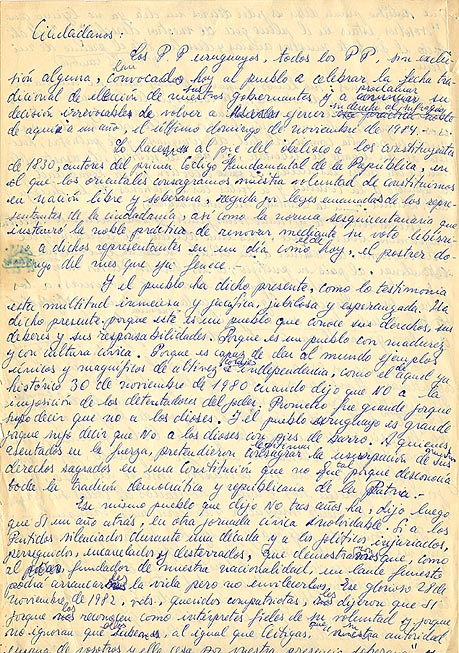 Ciudadanos:
Los P P uruguayos, todos los PP, sin exclu-
sión alguna, han convocado hoy al pueblo a celebrar la fecha tra-
dicional de elección de nuestros gobernantes y a proclamar su
decisión irrevocable de volver a ejercer su derecho al sufragio
de aquí a un año, el último domingo de noviembre de 1984.-
Lo hacemos al pie del Obelisco a los Constituyentes
de 1830, autores del primer Código Fundamental de la República, en
el que los orientales consagramos nuestra voluntad de constituirnos
en nación libre y soberana, regida por leyes emanadas de los repre-
sentantes de la ciudadanía, así como la norma sesquicentenaria que
instauró la noble práctica de renovar mediante su voto libérri-
mo a dichos representantes en un día como el de hoy, el postrer do-
mingo del mes que ya fenece.-
Y el pueblo ha dicho presente, como lo testimonia
esta multitud inmensa y pacífica, jubilosa y esperanzada. Ha
dicho presente porque este es un pueblo que conoce sus derechos, sus
deberes y sus responsabilidades. Porque es un pueblo con madurez
y con cultura cívica. Porque es capaz de dar al mundo ejemplos
únicos y magníficos de altivez e independencia, como el de aquel ya
histórico 30 de noviembre de 1980 cuando dijo que NO a la
imposición de los detentadores del poder. Prometeo fue grande porque
supo decir que no a los dioses. Y el pueblo uruguayo es grande
porque supo decir que NO a los dioses con pies de barro. A quienes,
asentados en la fuerza, pretendieron consagrar la usurpación de sus
derechos sagrados en una Constitución que no es tal porque desconocía
toda la tradición democrática y republicana de la Patria.-
Ese mismo pueblo que dijo NO tres años ha, dijo luego
que SI un año atrás, en otra jornada cívica inolvidable. Sí a los
Partidos silenciados durante una década y a los políticos injuriados,
perseguidos, encarcelados y desterrados, que demostraron que, como
el fundador de nuestra nacionalidad, un lance funesto
podrá arrancarles la vida pero no envilecerlos. Ese glorioso 28 de
noviembre de 1982, vds., queridos compatriotas, dijeron que SI
porque reconocen como intérpretes fieles de su voluntad y porque
no ignoran que sabemos, al igual que Artigas, que nuestra autoridad
emana de vosotros y ella cesa por vuestra presencia soberana